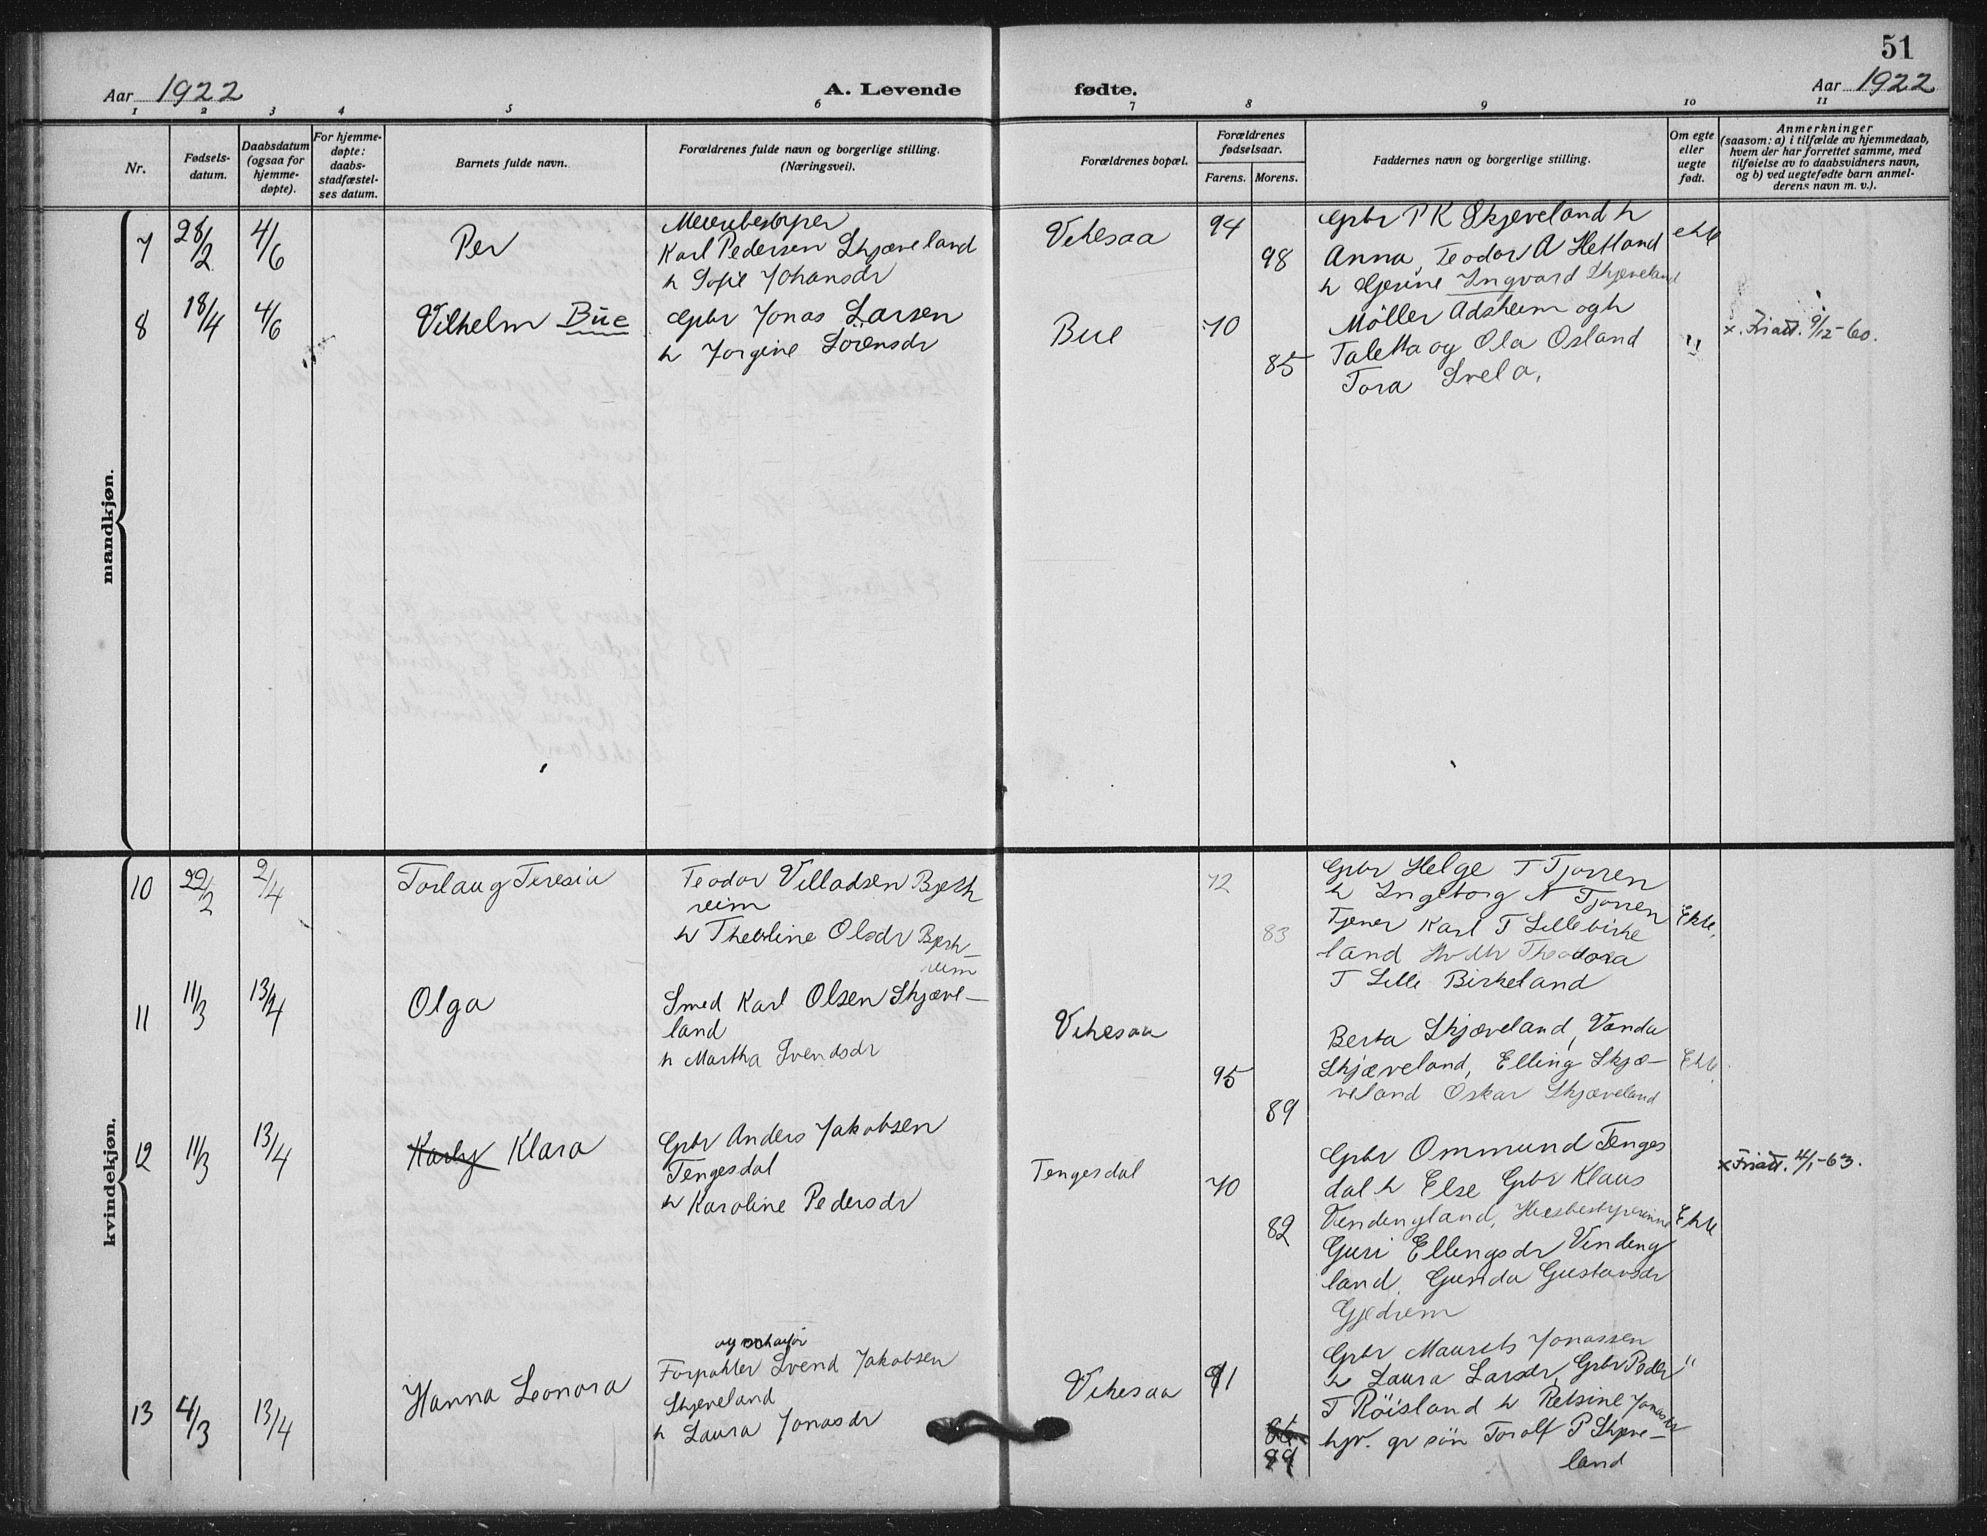 51
Aar 1922
A. Levende
fødte.
Aar 1922
1 2 3 4 5 6 7 8 9 10 11
Nr.
Fødsels-
datum.
Daabsdatum
(ogsaa for
hjemme-
døpte).
For hjemme-
døpte:
daabs-
stadfæstel-
ses datum.
Barnets fulde navn.
Forældrenes fulde navn og borgerlige stilling.
(Næringsvei).
Forældrenes bopæl.
Forældrenes
fødselsaar.
Farens. Morens.
Faddernes navn og borgerlige stilling.
Om egte
eller
uegte
født.
Anmerkninger
(saasom: a) i tilfælde av hjemmedaab,
hvem der har forrettet samme, med
tilføielse av to daabsvidners navn,
og b) ved uegtefødte barn anmel-
derens navn m. v.).
mandkjøn.
7 28/2 4/6 Per
Meieribestyrer
Karl Pedersen Skjæveland
h Sofie Johansdr
Vikesaa 94
98
Gbr P K Skjæveland h
Anna, Teodor A Hetland
h Gjerine Ingvard Skjæveland
ekte
8 18/4 4/6 Vilhelm Bue
Gbr Jonas Larsen
h Jorgine Sörensdr
Bue 70
85
Möller Adsheim og h
Taletta og Ola Osland
Tora Svela.
"
x. Friatt. 9/12-60.
kvindekjøn.
10 22/2 2/4 Torlaug Teresia
Teodor Villadsen Bjerk
reim
h Theoline Olsdr Bjerk-
reim
72
83
Gbr Helge T Tjorren
h Ingeborg N Tjorren
Tjener Karl T Lillebirke
land Theodora
T Lille Birkeland
Ekte.
11 11/3 13/4 Olga
Smed Karl Olsen Skjæve-
land
h Martha Svendsdr
Vikesaa
95
89
Berta Skjæveland, Vanda
Skjæveland, Elling Skjæ-
veland Oskar Skjæveland
Ekte.
12 11/3 13/4 Karly Klara
Gbr Anders Jakobsen
Tengesdal
h Karoline Pedersdr
Tengesdal 70
82
Gbr Ommund Tenges
dal h Else Gbr Klaus
Vendengland, Husbestyrerinne
Guri Ellingsdr Vindeng
land. Gunda Gustavsdr
Gjedrem
Ekte
x Friatt. 4/1-63.
13 4/3 13/4 Hanna Leonora
og
Forpakter Svend Jakobsen
Skjæveland
h Laura Jonasdr
Vikesaa 91
89
Gbr Maurits Jonassen
h Laura Larsdr, Gbr Peder
T Röisland h Retsine Jonasdr
hjv. gr sön Torolf P Skjæve-
land
"